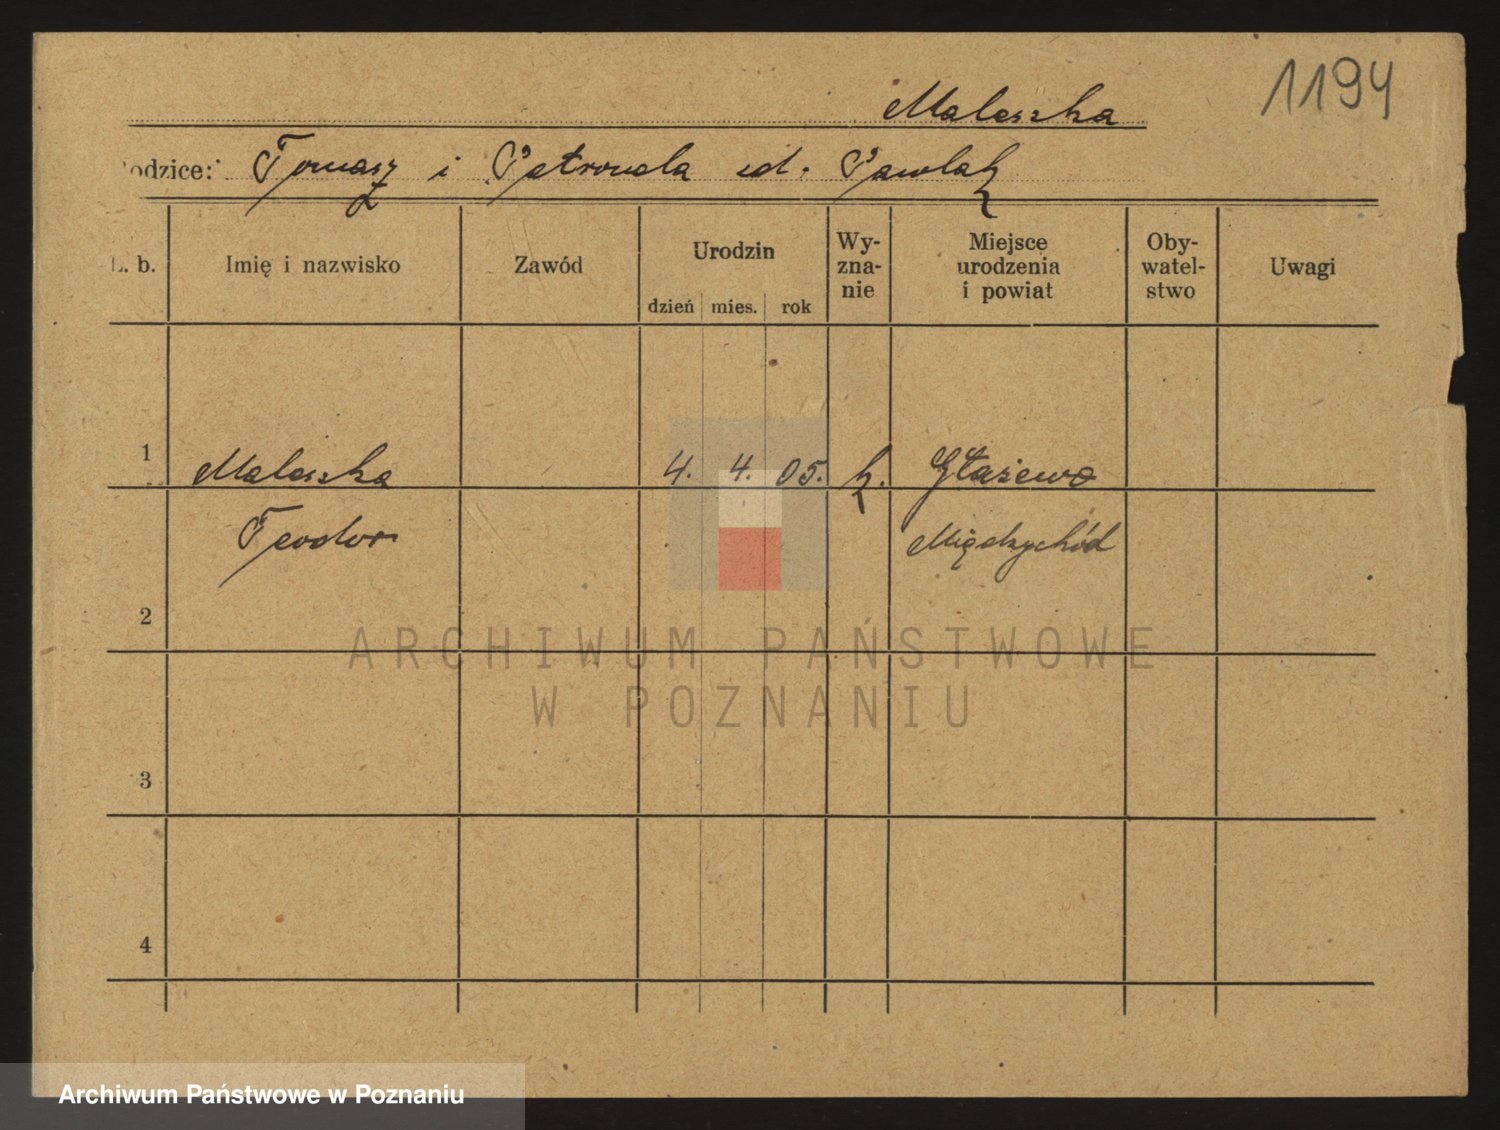 1194
Maleszka
odzice: Tomasz i Petronela ud. Pawlak
L. b. Imię i nazwisko Zawód Urodzin Wy- Miejsce Oby- Uwagi
zna- urodzenia watel-
nie i powiat stwo
dzień mies. rok
1 Maleszka 4. 4. 05. k. Głażewo
Teodor Międzychód
2
ARCHIWUM PAŃSTWOWE
W POZNANIU
3
4
Archiwum Państwowe w Poznaniu